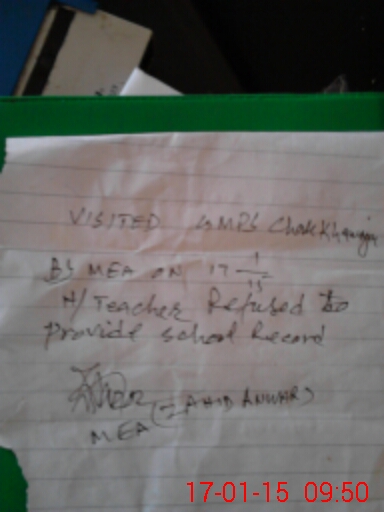 VISITED GMPS Chak Khawaja
By MEA ON 17 1/15
H/Teacher Refused to
provide school Record
(ZAHID ANWAR)
MEA
17-01-15 09:50